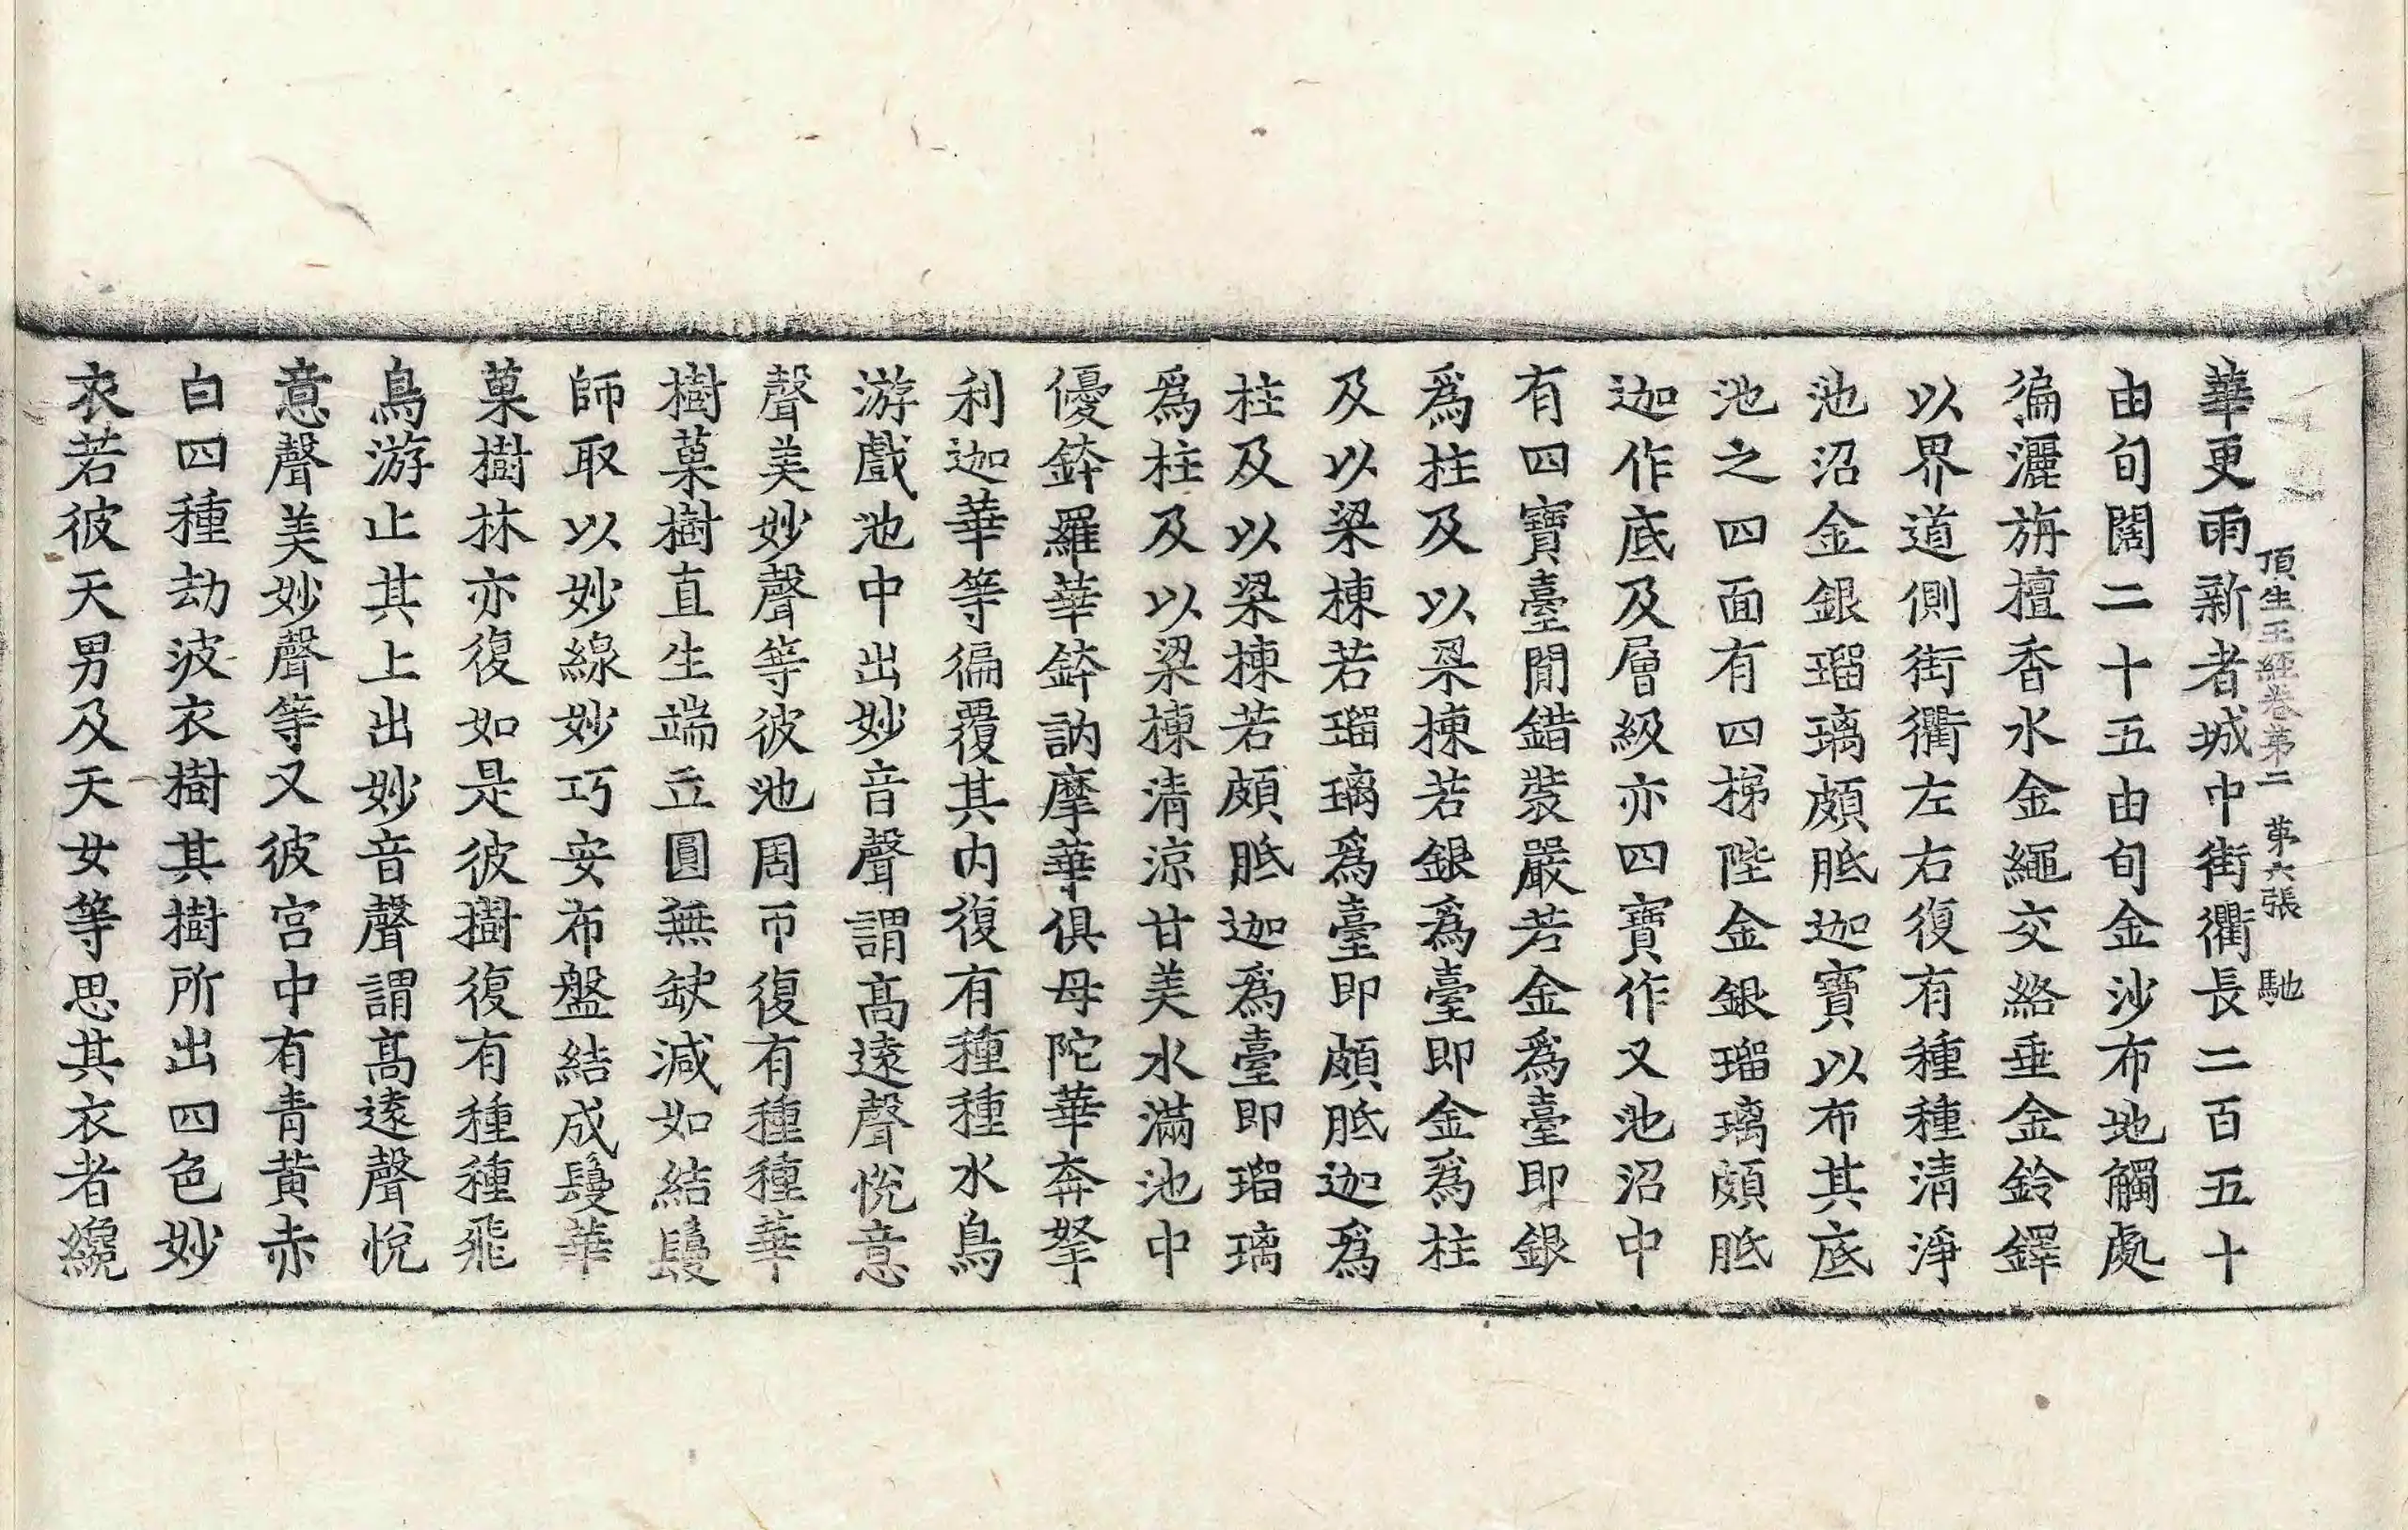 頂生王經卷第二　第六張　馳
華更雨新者城中街衢長二百五十
由旬闊二十五由旬金沙布地觸處
徧灑旃檀香水金繩交絡垂金鈴鐸
以界道側街衢左右復有種種清淨
池沼金銀瑠璃頗胝迦寶以布其底
池之四面有四梯陛金銀瑠璃頗胝
迦作底及層級亦四寶作又池沼中
有四寶臺閒錯裝嚴若金爲臺即銀
爲柱及以梁棟若銀爲臺即金爲柱
及以梁棟若瑠璃爲臺即頗胝迦爲
柱及以梁棟若頗胝迦爲臺即瑠璃
爲柱及以梁棟清涼甘美水滿池中
優鉢羅華鉢訥摩華俱母陀華奔拏
利迦華等徧覆其内復有種種水鳥
游戲池中出妙音聲謂髙遠聲悅意
聲美妙聲等彼池周帀復有種種華
樹菓樹直生端立圓無缺減如結鬘
師取以妙線妙巧安布盤結成鬘華
菓樹林亦復如是彼樹復有種種飛
鳥游止其上出妙音聲謂髙遠聲悅
意聲美妙聲等又彼宮中有青黃赤
白四種劫波衣樹其樹所出四色妙
衣若彼天男及天女等思其衣者纔